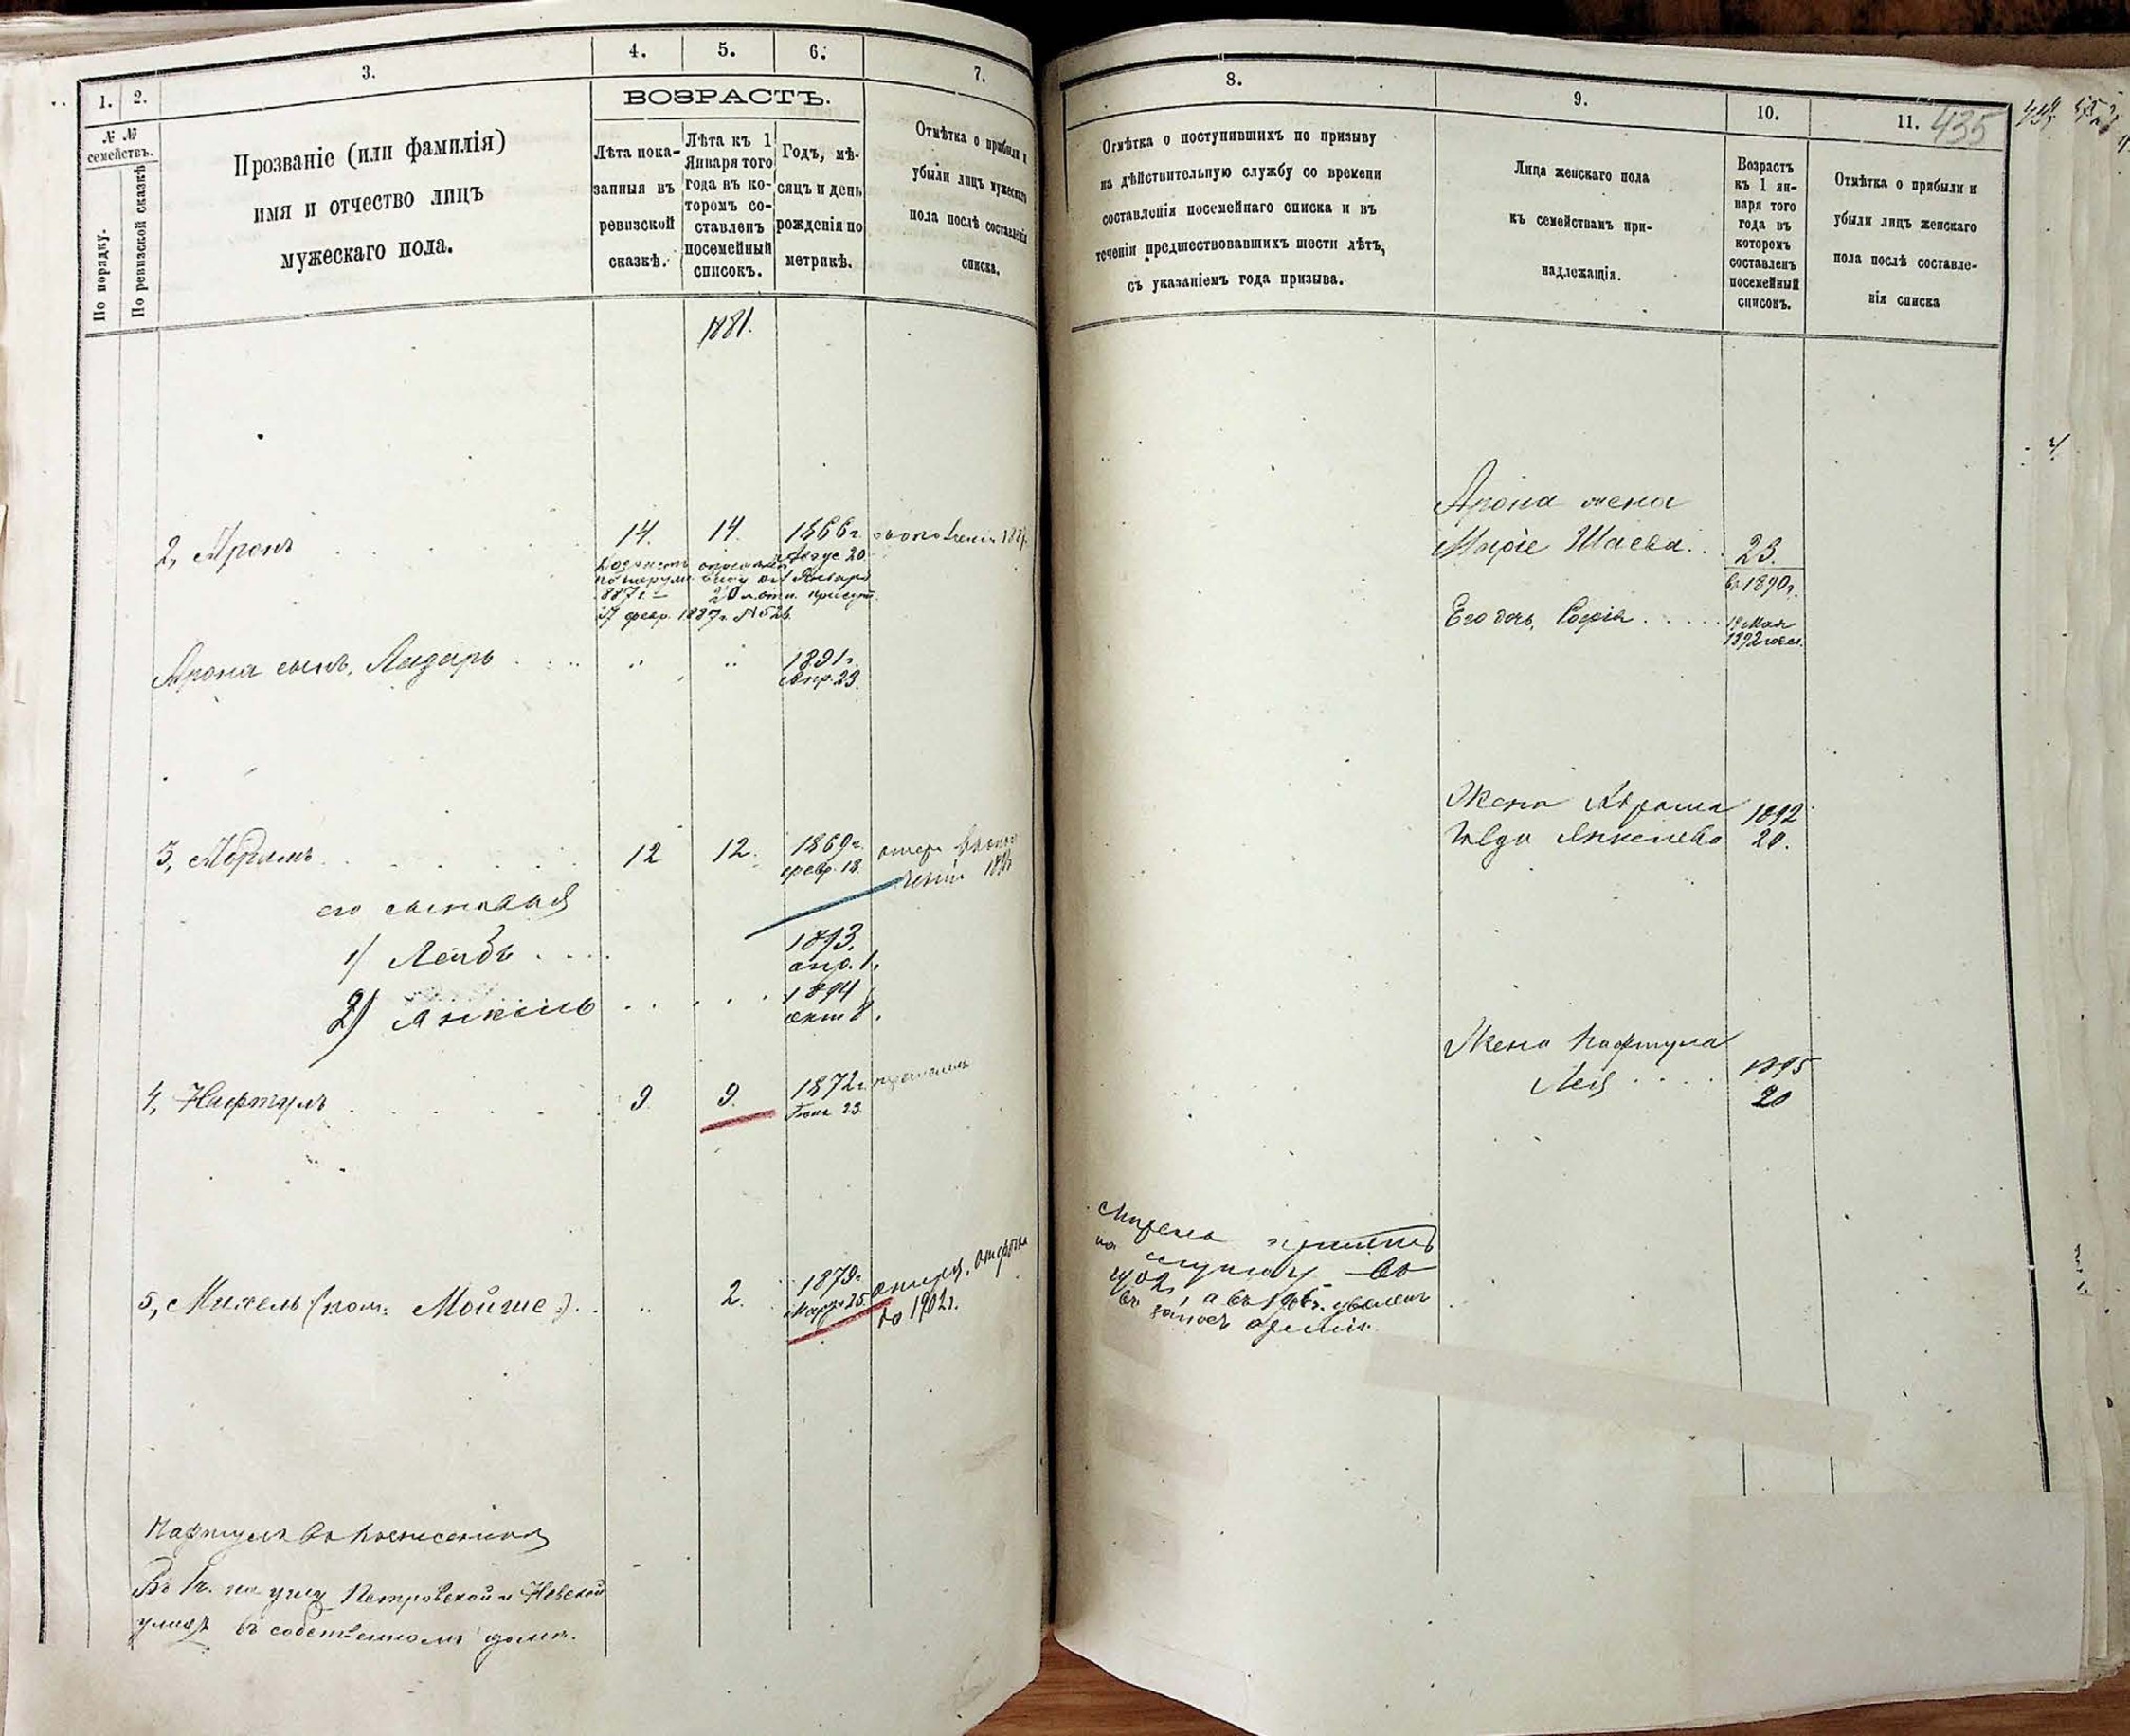 1.
2.
3.
4.
5.
6.
7.
№ №
семействъ.
По порядку.
По ревизской сказкѣ
Прозваніе (или фамилія)
имя и отчество лицъ
мужескаго пола.
ВОЗРАСТЪ.
Лѣта пока-
занныя въ
ревизской
сказкѣ.
Лѣта къ 1
Января того
года въ ко-
торомъ со-
ставленъ
посемейный
списокъ.
Годъ, мѣ-
сяцъ и день
рожденія по
метрикѣ.
Отмѣтка о прибыли и
убыли лицъ мужескаго
пола послѣ составленія
списка.
1881.
2, Аронъ
14.
14.
1866 г.
20
17 февр. 1887 г. № 526
Арона сынъ, Лазарь
1891 г.
Апр. 23.
3, Абрамъ
12
12.
1869 г.
февр. 13.
его сыновья
1/ Лейбъ
1893.
апр. 1.
2/ Янкель
1894
окт 8.
4, Нафтулъ
9
9.
1872 г.
23.
5, Михель (пом: Мойше)
2.
1879 г.
Марта 25.
до 1902 г.
Нафтулъ въ Вознесенскѣ
Въ Гг. на углу Петровской и Невской
улицъ въ собственномъ домѣ.
8.
9.
10.
11.
435
Отмѣтка о поступившихъ по призыву
на дѣйствительную службу со времени
составленія посемейнаго списка и въ
теченіи предшествовавшихъ шести лѣтъ,
съ указаніемъ года призыва.
Лица женскаго пола
къ семействамъ при-
надлежащія.
Возрастъ
къ 1 ян-
варя того
года въ
которомъ
составленъ
посемейный
списокъ.
Отмѣтка о прибыли и
убыли лицъ женскаго
пола послѣ составле-
нія списка
Арона жена
Шаева
23.
въ 1890 г.
Его дочь, Софія
19 Мая
1892 года.
Жена Абрама
Янкелева
1892
20.
Жена Нафтула
Лея
1895
20
Михель принятъ
на службу въ
1902, а въ уволенъ
въ запасъ арміи.